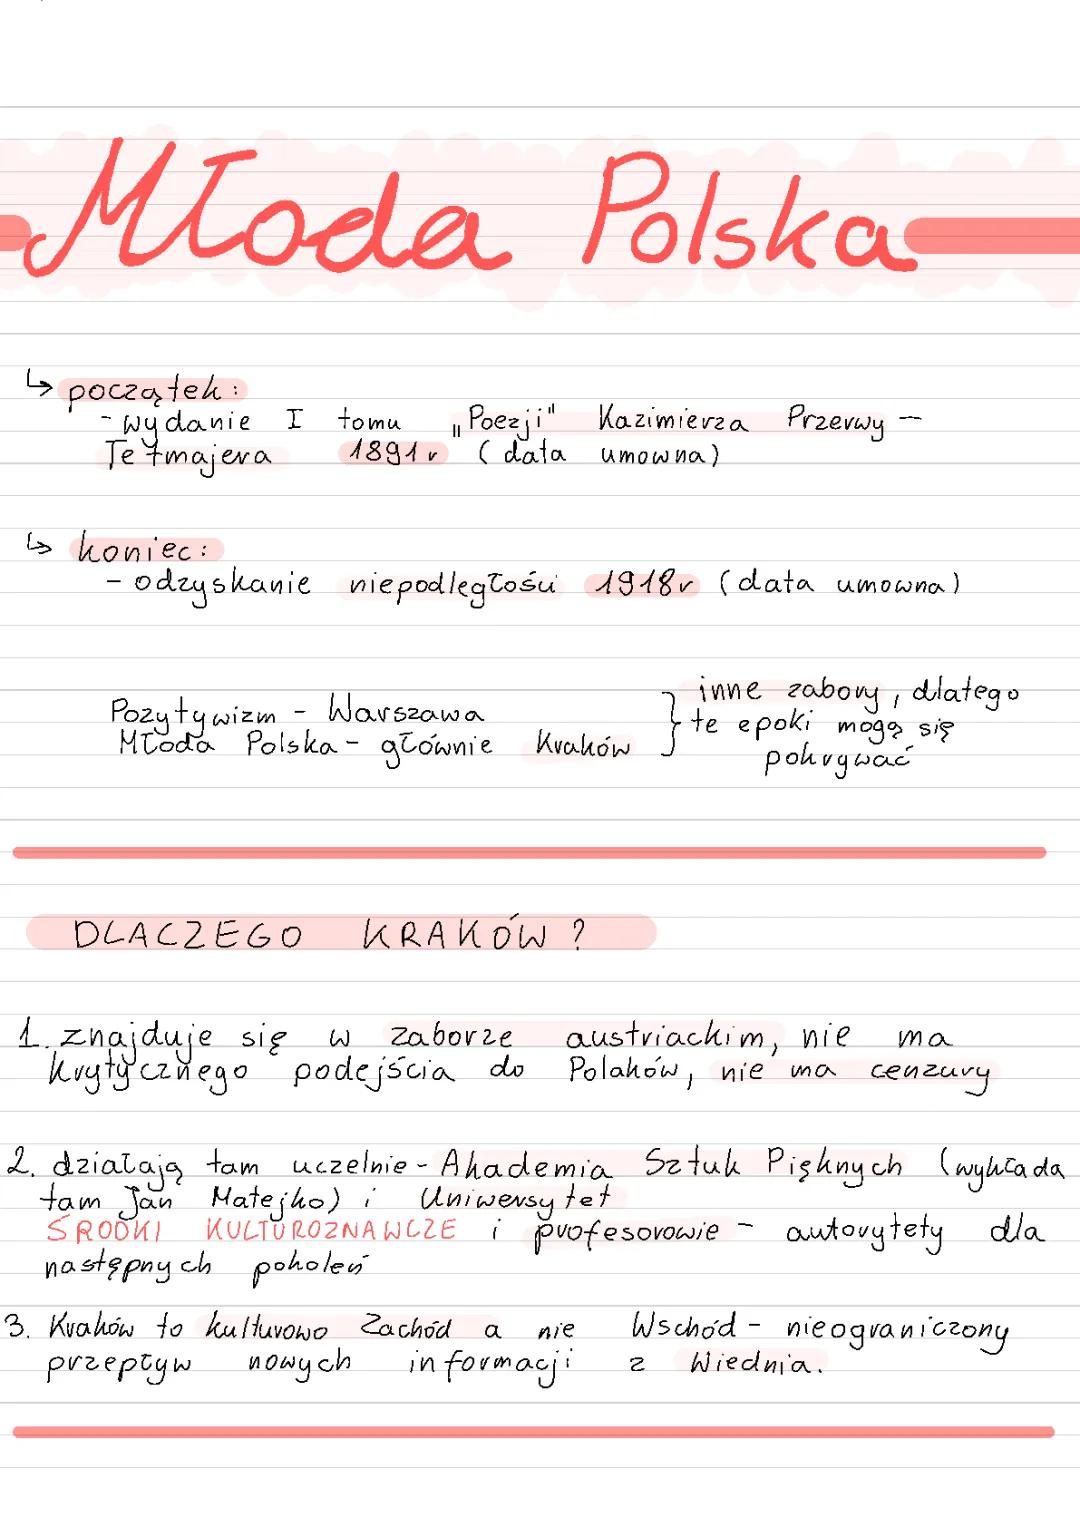 Młoda Polska
↳ początek:
- wydanie I tomu „Poezji" Kazimierza Przerwy -
Tetmajera 1891r (data umowna)
↳ koniec:
- odzyskanie niepodległości 1918r (data umowna)
Pozytywizm - Warszawa
Młoda Polska - głównie Kraków
} inne zabory, dlatego
te epoki mogą się
pokrywać
DLACZEGO KRAKÓW?
1. znajduje się w zaborze austriackim, nie ma
krytycznego podejścia do Polaków, nie ma cenzury
2. działają tam uczelnie - Akademia Sztuk Pięknych (wykłada
tam Jan Matejko) i Uniwersytet
ŚRODKI KULTUROZNAWCZE i profesorowie - autorytety dla
następnych pokoleń
3. Kraków to kulturowo Zachód a nie Wschód - nieograniczony
przepływ nowych informacji z Wiednia.